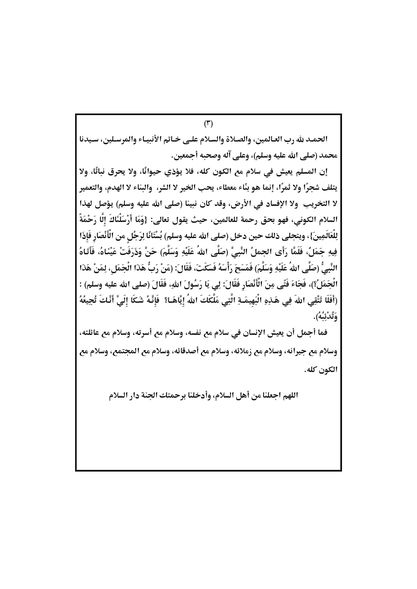 (٣)
الحمد لله رب العالمين، والصلاة والسلام على خاتم الأنبياء والمرسلين، سيدنا
محمد (صلى الله عليه وسلم)، وعلى آله وصحبه أجمعين.
إن المسلم يعيش في سلام مع الكون كله، فلا يؤذي حيوانًا، ولا يحرق نباتًا، ولا
يتلف شجرًا ولا ثمرًا، إنما هو بنَّاء معطاء، يحب الخير لا الشر، والبناء لا الهدم، والتعمير
لا التخريب ولا الإفساد في الأرض، وقد كان نبينا (صلى الله عليه وسلم) يؤصل لهذا
السلام الكوني، فهو بحق رحمة للعالمين، حيث يقول تعالى: {وَمَا أَرْسَلْنَاكَ إِلَّا رَحْمَةً
لِلْعَالَمِينَ}، ويتجلى ذلك حين دخل (صلى الله عليه وسلم) بُسْتَانًا لِرَجُلٍ من الْأَنْصَارِ فَإِذَا
فِيهِ جَمَلٌ، فَلَمَّا رَأَى الجملُ النَّبِيَّ (صَلَّى اللهُ عَلَيْهِ وَسَلَّمَ) حَنَّ وَذَرَفَتْ عَيْنَاهُ، فَأَتَاهُ
النَّبِيُّ (صَلَّى اللهُ عَلَيْهِ وَسَلَّمَ) فَمَسَحَ رَأْسَهُ فَسَكَتَ، فَقَالَ: (مَنْ رَبُّ هَذَا الْجَمَلِ، لِمَنْ هَذَا
الْجَمَلُ؟)، فَجَاءَ فَتًى مِنَ الْأَنْصَارِ فَقَالَ: لِي يَا رَسُولَ اللهِ، فَقَالَ (صلى الله عليه وسلم) :
(أَفَلَا تَتَّقِي اللهَ فِي هَذِهِ الْبَهِيمَةِ الَّتِي مَلَّكَكَ اللهُ إِيَّاهَا؟ فَإِنَّهُ شَكَا إِلَيَّ أَنَّكَ تُجِيعُهُ
وَتُدْئِبُهُ).
فما أجمل أن يعيش الإنسان في سلام مع نفسه، وسلام مع أسرته، وسلام مع عائلته،
وسلام مع جيرانه، وسلام مع زملائه، وسلام مع أصدقائه، وسلام مع المجتمع، وسلام مع
الكون كله.
اللهم اجعلنا من أهل السلام، وأدخلنا برحمتك الجنة دار السلام